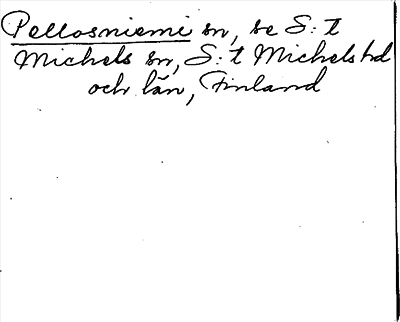 Pellosniemi sn, se S:t
Michels sn, S:t Michels hd
och län, Finland